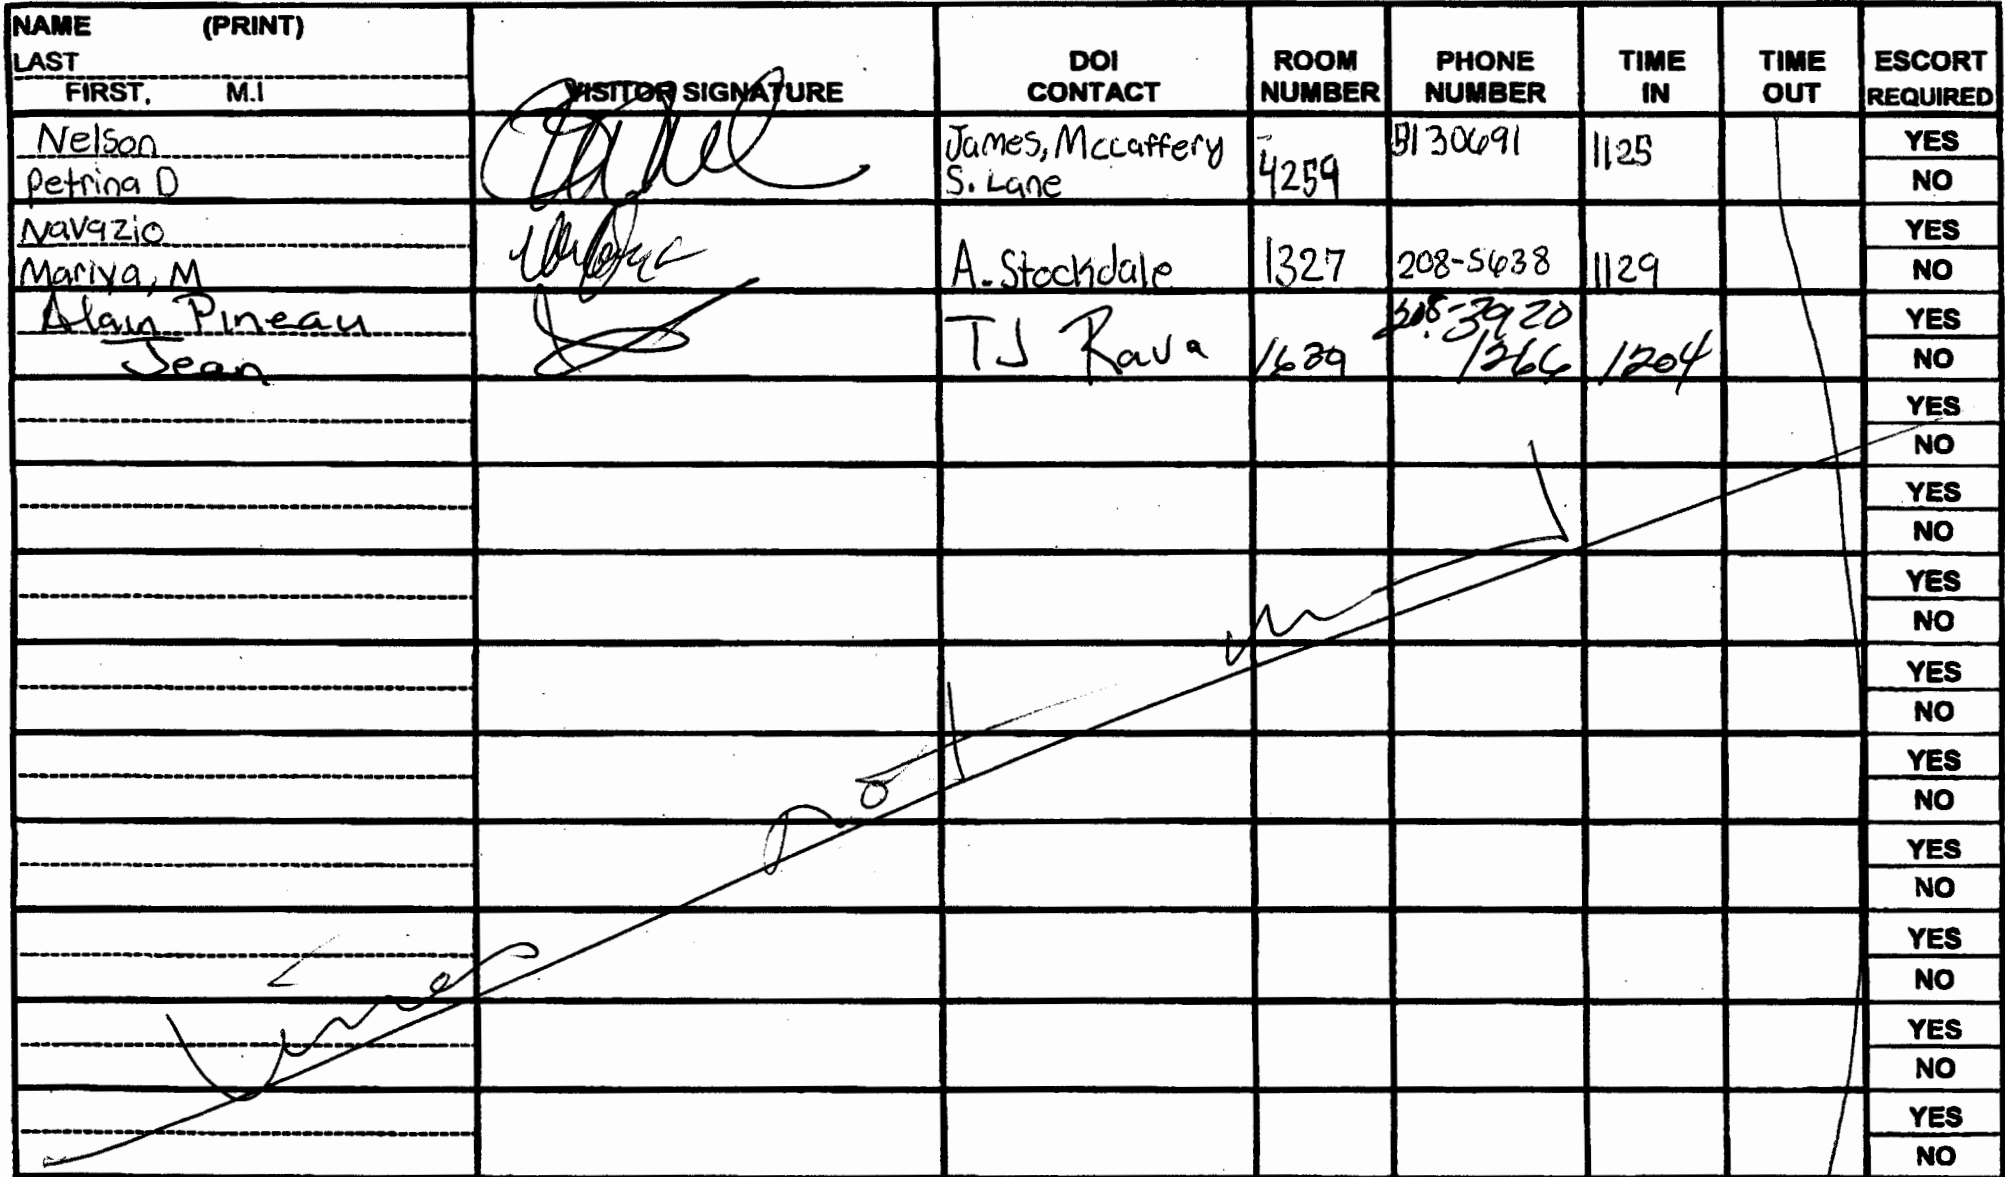 NAME (PRINT)
LAST
FIRST, M.I
VISITOR SIGNATURE
DOI CONTACT
ROOM NUMBER
PHONE NUMBER
TIME IN
TIME OUT
ESCORT REQUIRED
Nelson
Petrina D
James, Mccaffery
S. Lane
4259
5130691
1125
YES
NO
Navazio
Mariya, M
A. Stockdale
1327
208-5638
1129
YES
NO
Alain Pineau
Jean
TJ Rava
1639
208-3920
1266
1204
YES
NO
YES
NO
YES
NO
YES
NO
YES
NO
YES
NO
YES
NO
YES
NO
YES
NO
YES
NO